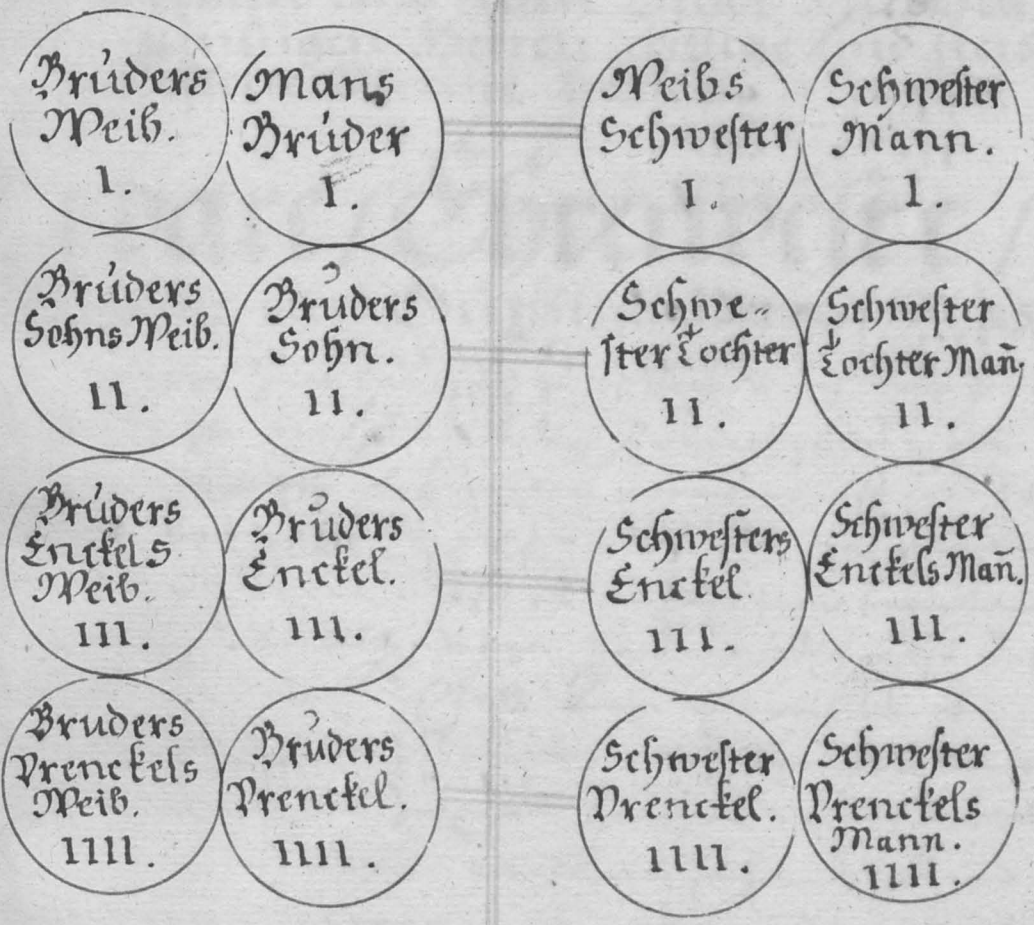 Brůders
Weib.
I.
Mans
Brůder
I.
Weibs
Schwester
I.
Schwester
Mann.
I.
Brůders
Sohns Weib.
II.
Brůders
Sohn.
II.
Schwe-
ster Tochter
II.
Schwester
Tochter Man̄.
II.
Brůders
Enckels
Weib.
III.
Brůders
Enckel.
III.
Schwesters
Enckel.
III.
Schwester
Enckels Man̄.
III.
Bruders
Vrenckels
Weib.
IIII.
Brůders
Vrenckel.
IIII.
Schwester
Vrenckel.
IIII.
Schwester
Vrenckels
Mann.
IIII.